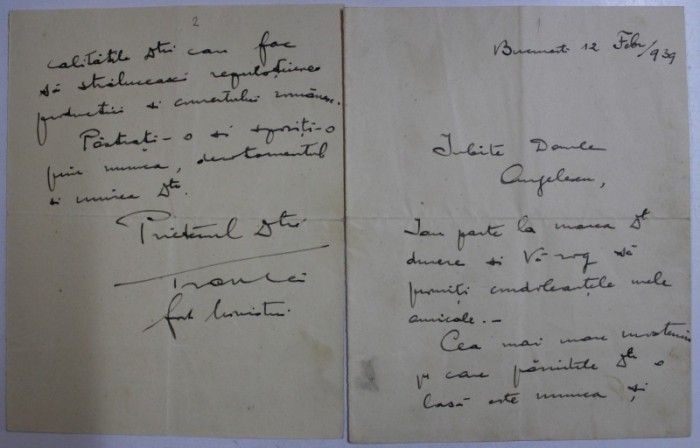 Bucuresti 12 Febr/939
Iubite Domnule
Angelescu,
Iau parte la marea Dtr
durere si Vă rog să
primiți condoleanțele mele
amicale.—
Cea mai mare mostenire
pe care părintele Dtr o
lasă este munca și
2
calitățile Dtri cari fac
să strălucească reputațiunea
productiei si comertului românesc.
Păstrați-o si sporiți-o
prin munca, devotamentul
si unirea Dtr
Prietenul Dtri
fost Ministru